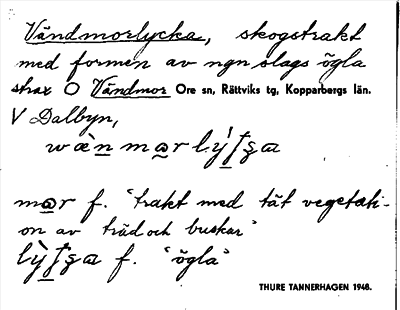 Vändmorlycka, skogstrakt
med formen av ngn slags ögla
strax O Vändmor Ore sn, Rättviks tg, Kopparbergs län.
V Dalbyn,
mɷr f. "trakt med tät vegetati-
on av träd och buskar"
f. "ögla"
THURE TANNERHAGEN 1948.